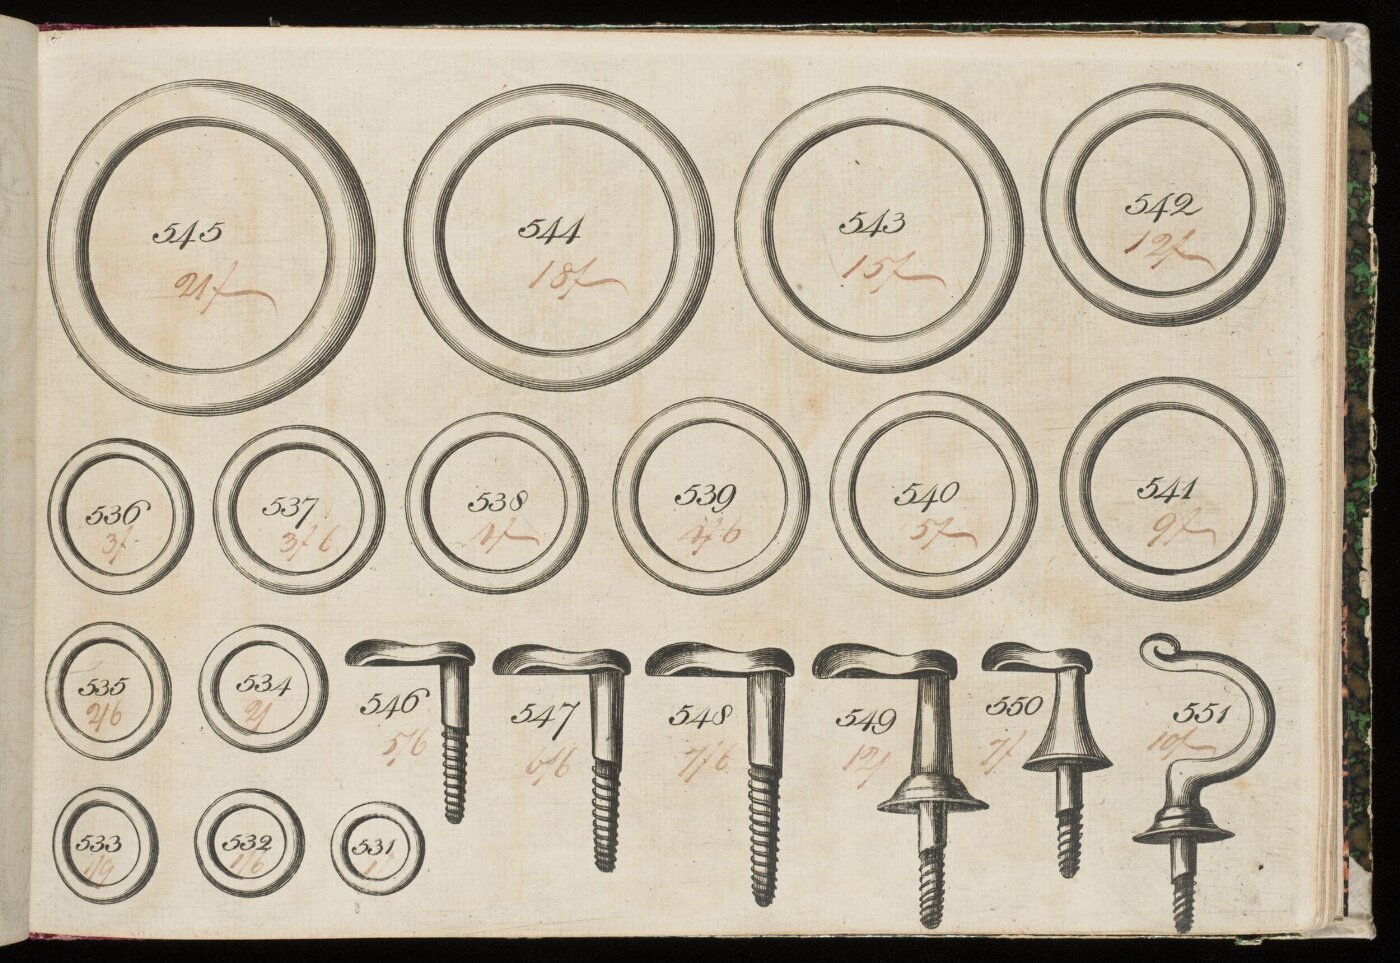 545
21/-
544
18/-
543
15/-
542
12/-
536
3/-
537
3/6
538
4/-
539
4/6
540
5/-
541
9/-
535
2/6
534
2/
546
5/6
547
6/6
548
7/6
549
12/
550
7/
551
10/-
533
1/9
532
1/6
531